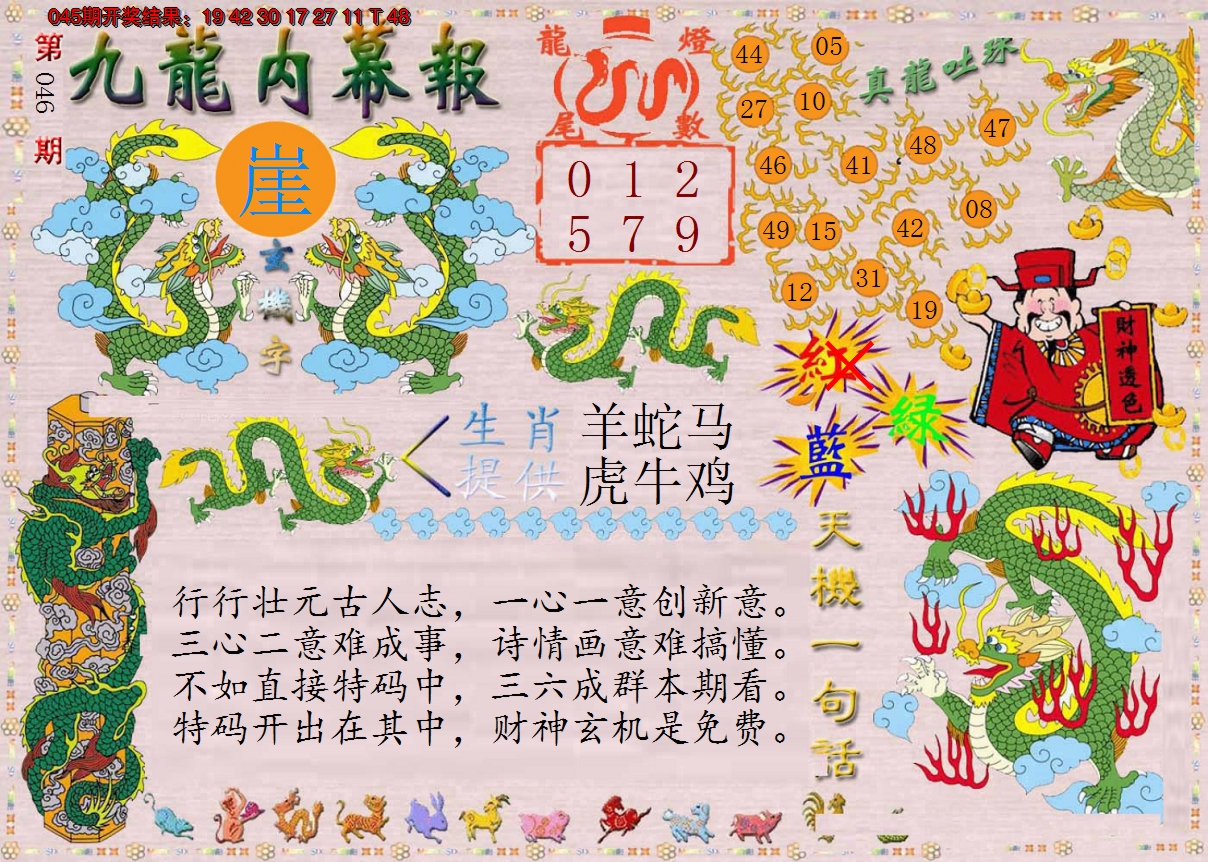 045期开奖结果：19 42 30 17 27 11 T 48
第046期
九龍内幕報
崖
玄機字
龍燈
尾數
0 1 2
5 7 9
真龍吐珠
44 05
27 10
46 41 48 47
49 15 42 08
12 31 19
紅
綠
藍
財神透色
生肖 羊蛇马
提供 虎牛鸡
天機一句话
行行壮元古人志，一心一意创新意。
三心二意难成事，诗情画意难搞懂。
不如直接特码中，三六成群本期看。
特码开出在其中，财神玄机是免费。